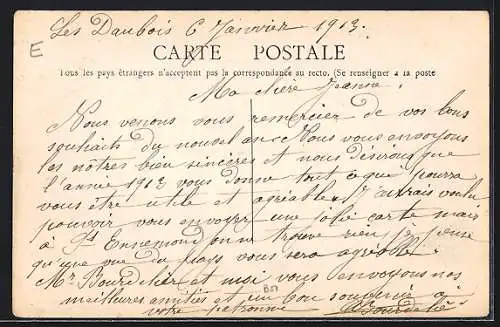 Les Daubois 6 Janvier 1913.
E
CARTE POSTALE
Tous les pays étrangers n'acceptent pas la correspondance au recto. (Se renseigner à la poste
Ma chère Jeanne,
Nous venons vous remercier de vos bons
souhaits du nouvel an. Nous vous envoyons
les nôtres bien sincères et nous désirons que
l'année 1913 vous donne tout ce que pourra
vous être utile et agréable. J'aurais voulu
pouvoir vous envoyer une jolie carte mais
à St Ennemond on ne trouve rien je pense
qu'une vue du pays vous sera agréable.
Mr Bourdelier et moi vous envoyons nos
meilleures amitiés et un bon souvenir à
votre patronne